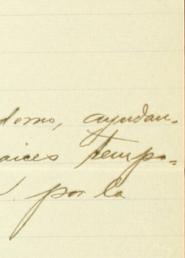 domo, ayudan-
aices tempo-
por la